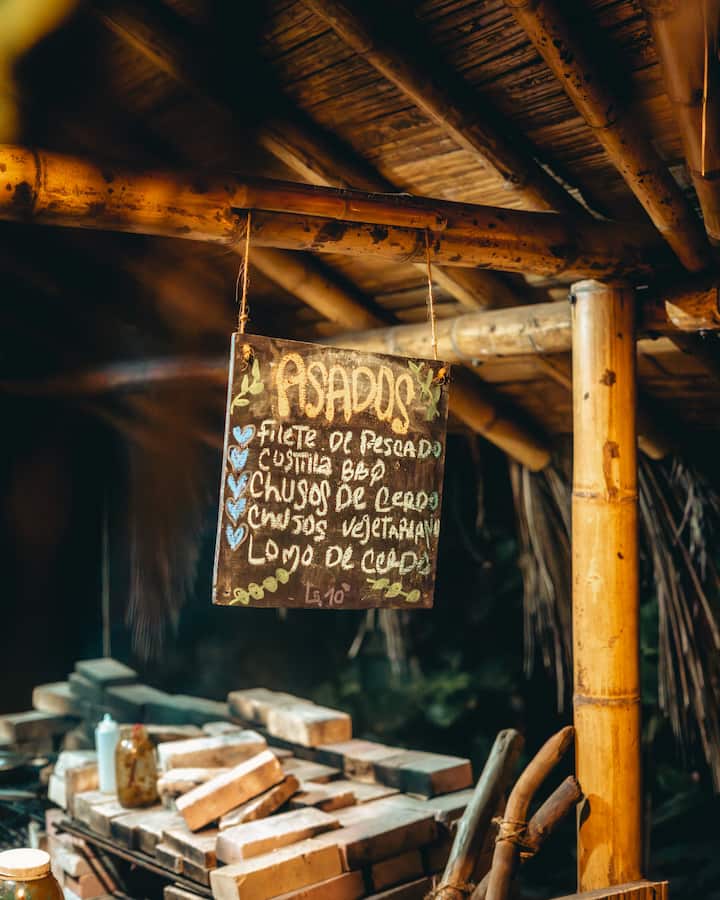 ASADOS
FILETE DE PESCADO
COSTILLA BBQ
CHUSOS DE CERDO
CHUSOS VEGETARIANO
LOMO DE CERDO